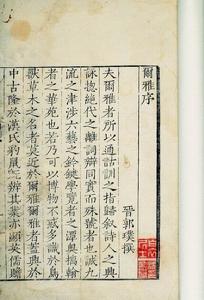 爾雅序
晉郭璞撰
夫爾雅者所以通詁訓之指歸叙詩人之興
詠揔絶代之離詞辯同實而殊號者也誠九
流之津涉六藝之鈐鍵學覽者之潭奥摛翰
者之華苑也若乃可以博物不惑多識於鳥
獸草木之名者莫近於爾雅爾雅者蓋興於
中古隆於漢氏豹鼠旣辯其業亦顯英儒贍